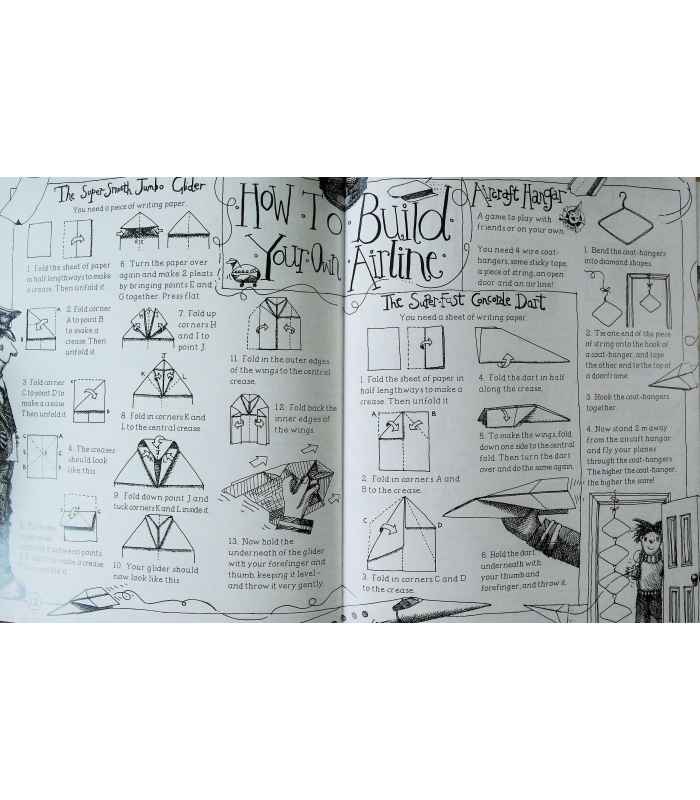 The Super-Smooth Jumbo Glider
You need a piece of writing paper.
1. Fold the sheet of paper
in half lengthways to make
a crease. Then unfold it.
2. Fold corner
A to point B
to make a
crease. Then
unfold it.
3. Fold corner
C to point D to
make a crease.
Then unfold it.
4. The creases
should look
like this.
between points
make a crease
6. Turn the paper over
again and make 2 pleats
by bringing points E and
G together. Press flat.
7. Fold up
corners H
and I to
point J.
J
K
L
8. Fold in corners K and
L to the central crease.
9. Fold down point J and
tuck corners K and L inside it.
10. Your glider should
now look like this.
How To
Build
Your Own
Airline
11. Fold in the outer edges
of the wings to the central
crease.
12. Fold back the
inner edges of
the wings.
13. Now hold the
underneath of the glider
with your forefinger and
thumb, keeping it level–
and throw it very gently.
The Super-fast Concorde Dart
You need a sheet of writing paper.
1. Fold the sheet of paper in
half lengthways to make a
crease. Then unfold it.
A
B
2. Fold in corners A
and B to the crease.
C
D
3. Fold in corners C and D
to the crease.
4. Fold the dart in half
along the crease.
5. To make the wings, fold
down one side to the central
fold. Then turn the dart
over and do the same again.
6. Hold the dart
underneath with
your thumb and
forefinger, and throw it.
Aircraft Hangar
A game to play with
friends or on your own.
You need 4 wire coat-
hangers, some sticky tape,
a piece of string, an open
door and an airline!
1. Bend the coat-hangers
into diamond shapes.
2. Tie one end of the piece
of string onto the hook of
a coat-hanger, and tape
the other end to the top of
a doorframe.
3. Hook the coat-hangers
together.
4. Now stand 2 m away
from the aircraft hangar
and fly your planes
through the coat-hangers.
The higher the coat-hanger,
the higher the score!